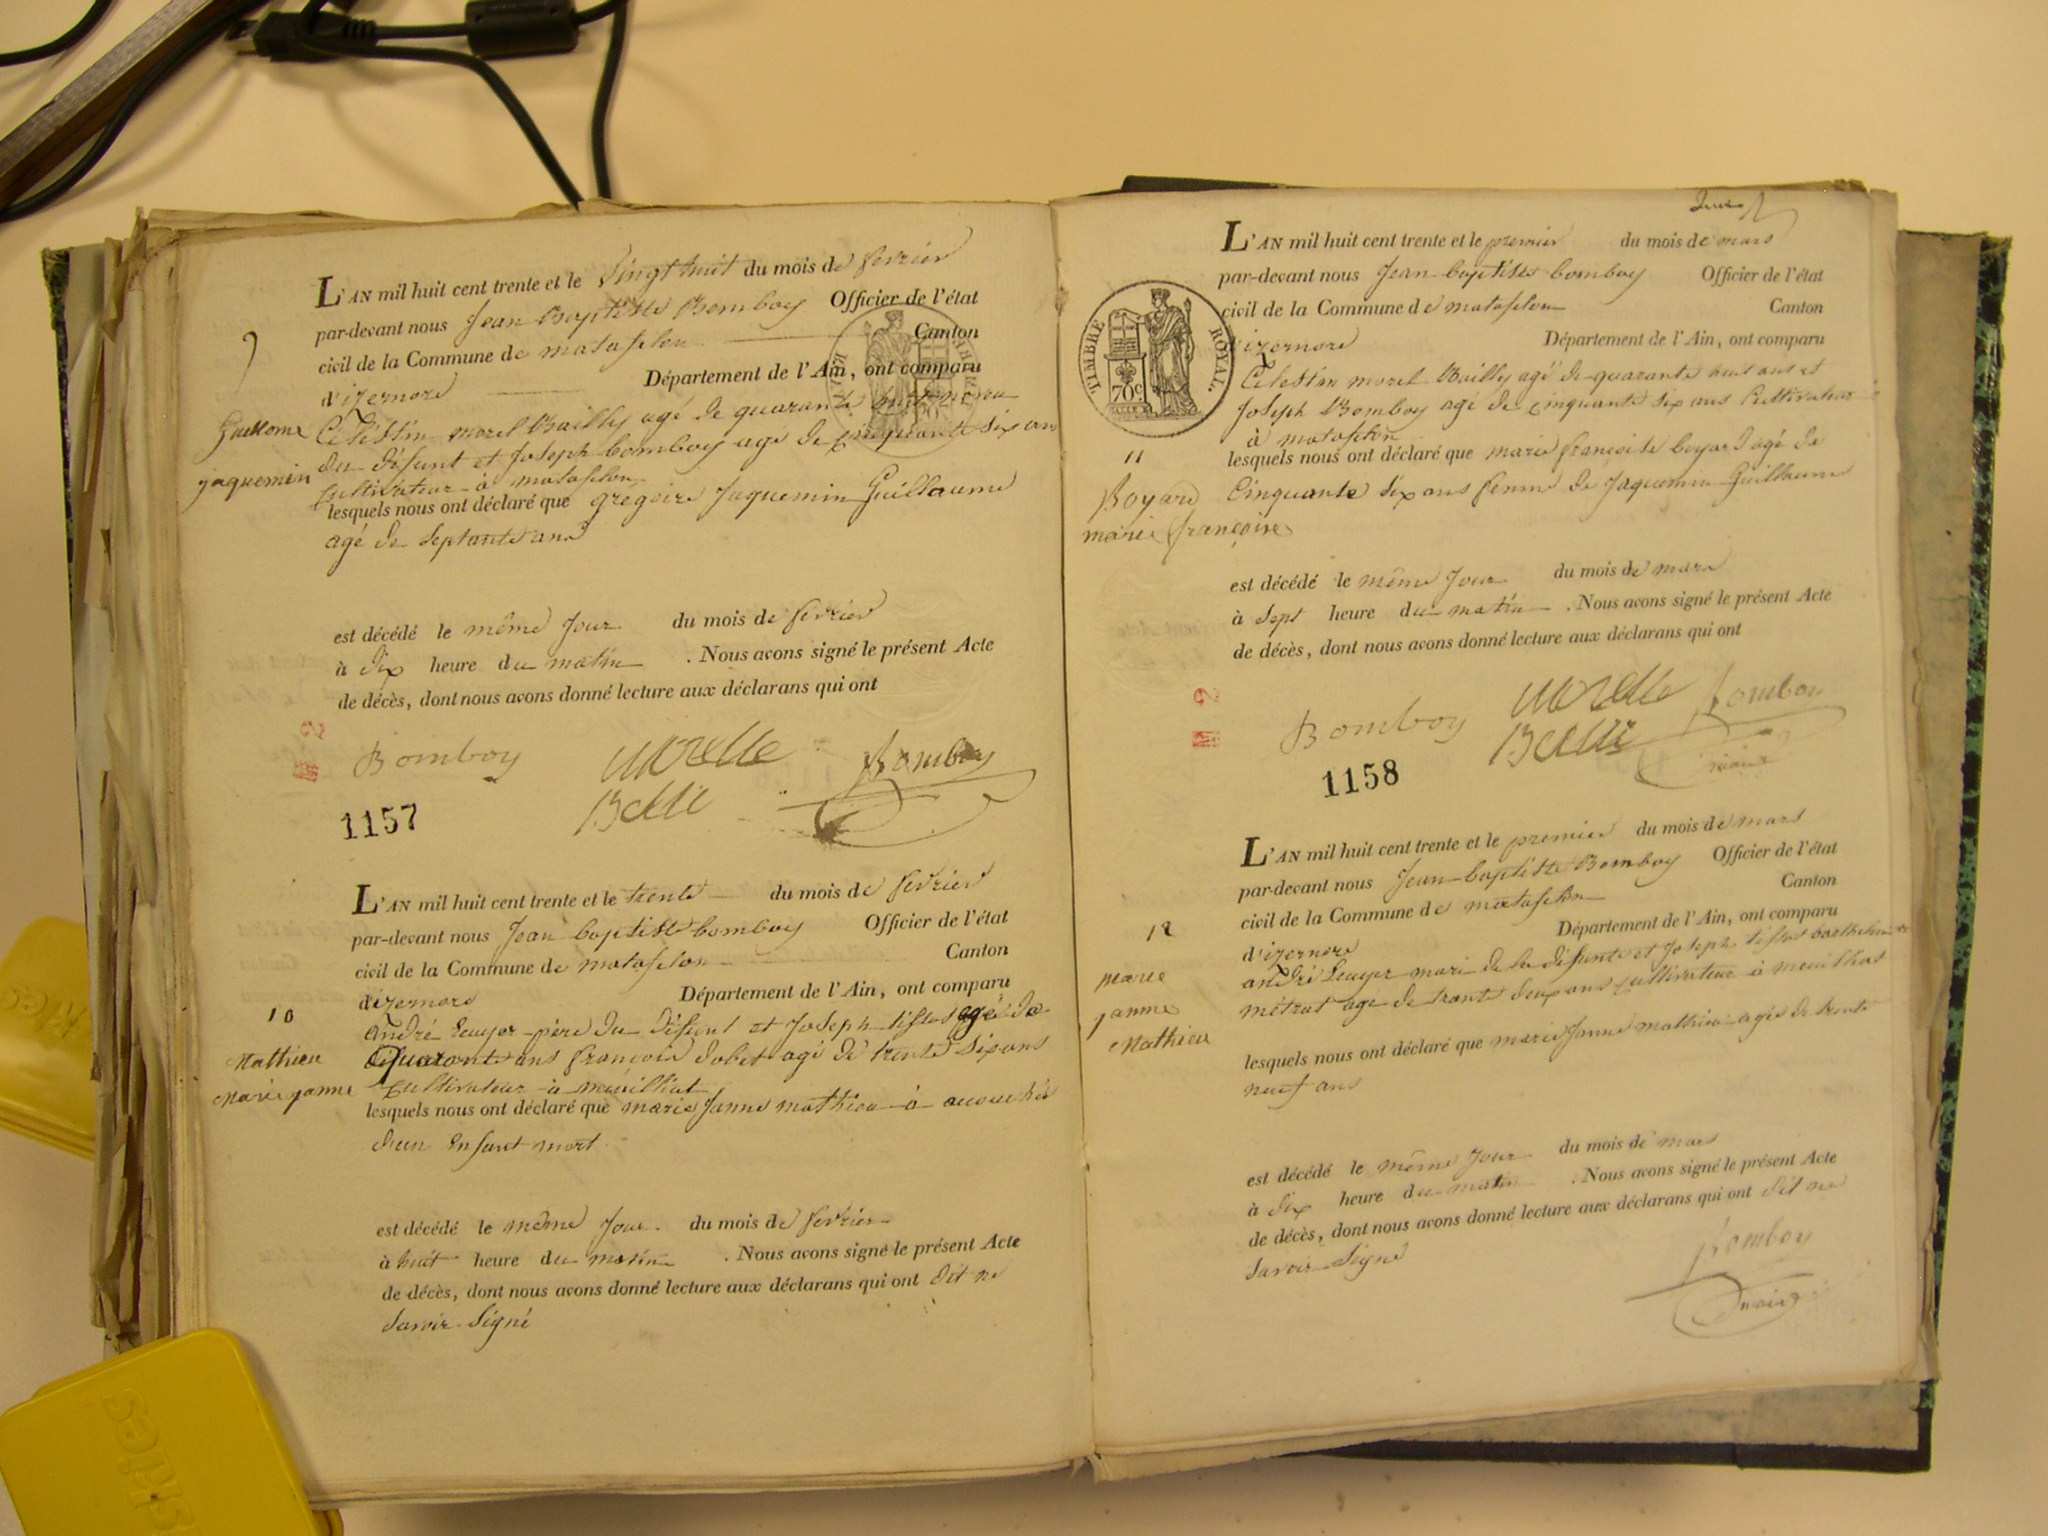 9
Guillome
jaquemin
L'AN mil huit cent trente et le vingt huit du mois de fevrier
par-devant nous Jean Baptiste Bomboy Officier de l'état
civil de la Commune de matafelon Canton
d'izernore Département de l'Ain, ont comparu
Célestin morel Bailly agé de quarante huit
du défunt et Joseph bomboy agé de cinquante six ans
cultivateur à matafelon
lesquels nous ont déclaré que gregoire Jaquemin Guillaume
agé de septante ans
est décédé le même Jour du mois de fevrier
à dix heure du matin . Nous avons signé le présent Acte
de décès, dont nous avons donné lecture aux déclarans qui ont
Bomboy morelle Bomboy
Belli
1157
10
Mathieu
Marie janne
L'AN mil huit cent trente et le trente du mois de fevrier
par-devant nous Jean baptiste bomboy Officier de l'état
civil de la Commune de matafelon Canton
d'izernore Département de l'Ain, ont comparu
andré Ecuyer père du défunt et Joseph tissot agé de
quarante ans françois dobet agé de trente six ans
cultivateur à meuilliat
lesquels nous ont déclaré que marie Janne mathieu à accouchée
d'un Enfant mort
est décédé le même Jour du mois de fevrier
à huit heure du matin . Nous avons signé le présent Acte
de décès, dont nous avons donné lecture aux déclarans qui ont dit ne
savoir signé
TIMBRE ROYAL.
70c
L'AN mil huit cent trente et le premier du mois de mars
par-devant nous Jean baptiste bomboy Officier de l'état
civil de la Commune de matafelon Canton
d'izernore Département de l'Ain, ont comparu
Celestin morel Bailly agé de quarante huit ans et
Joseph Bomboy agé de cinquante six ans Cultivateur
à matafelon
11
Boyard
marie françoise
lesquels nous ont déclaré que marie françoise boyard agé de
Cinquante six ans femme de Jaquemin Guillaume
est décédé le même Jour du mois de mars
à sept heure du matin . Nous avons signé le présent Acte
de décès, dont nous avons donné lecture aux déclarans qui ont
Bomboy morelle Bomboy
Belli maire
1158
12
marie
janne
Mathieu
L'AN mil huit cent trente et le premier du mois de mars
par-devant nous Jean baptiste Bomboy Officier de l'état
civil de la Commune de matafelon Canton
d'izernore Département de l'Ain, ont comparu
andré Ecuyer mari de la défunte et Joseph tissot
métrat agé de trente deux ans cultivateur à meuilliat
lesquels nous ont déclaré que marie Janne mathieu agée de trente
neuf ans
est décédé le même Jour du mois de mars
à dix heure du matin . Nous avons signé le présent Acte
de décès, dont nous avons donné lecture aux déclarans qui ont dit ne
savoir signé
Bomboy
maire